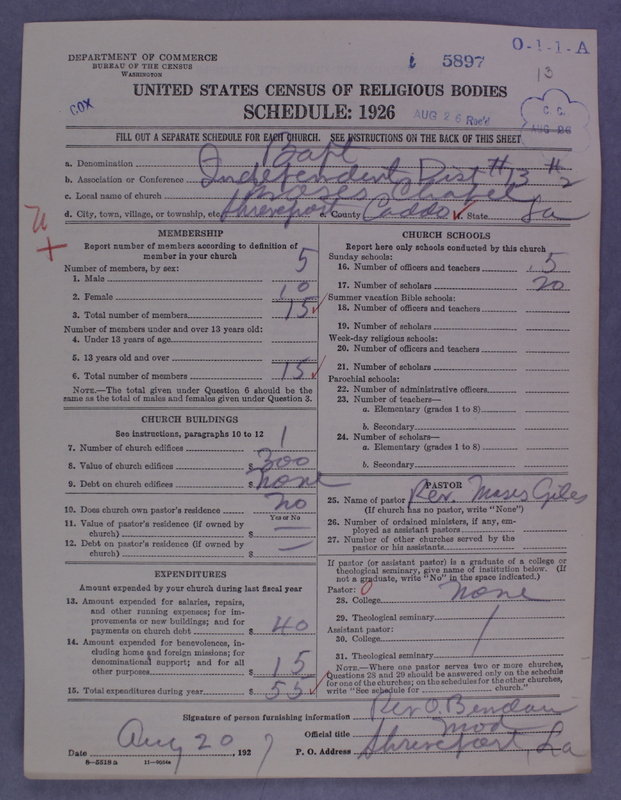 DEPARTMENT OF COMMERCE
BUREAU OF THE CENSUS
WASHINGTON
5897
O-1-1-A
13
UNITED STATES CENSUS OF RELIGIOUS BODIES
SCHEDULE: 1926
COX
AUG 26 Rec'd
C. C.
AUG 26
FILL OUT A SEPARATE SCHEDULE FOR EACH CHURCH. SEE INSTRUCTIONS ON THE BACK OF THIS SHEET
a. Denomination Bapt
b. Association or Conference Independent Dist #13 #2
c. Local name of church Moses Chapel
d. City, town, village, or township, etc. Shreveport e. County Caddo f. State La
MEMBERSHIP
Report number of members according to definition of
member in your church
Number of members, by sex:
1. Male 5
2. Female 10
3. Total number of members 15
Number of members under and over 13 years old:
4. Under 13 years of age
5. 13 years old and over
6. Total number of members 15
NOTE.—The total given under Question 6 should be the
same as the total of males and females given under Question 3.
CHURCH BUILDINGS
See instructions, paragraphs 10 to 12
7. Number of church edifices 1
8. Value of church edifices $ 300
9. Debt on church edifices $ none
10. Does church own pastor's residence no
Yes or No
11. Value of pastor's residence (if owned by
church) $ —
12. Debt on pastor's residence (if owned by
church) $ —
EXPENDITURES
Amount expended by your church during last fiscal year
13. Amount expended for salaries, repairs,
and other running expenses; for im-
provements or new buildings; and for
payments on church debt $ 40
14. Amount expended for benevolences, in-
cluding home and foreign missions; for
denominational support; and for all
other purposes $ 15
15. Total expenditures during year $ 55
CHURCH SCHOOLS
Report here only schools conducted by this church
Sunday schools:
16. Number of officers and teachers 5
17. Number of scholars 20
Summer vacation Bible schools:
18. Number of officers and teachers
19. Number of scholars
Week-day religious schools:
20. Number of officers and teachers
21. Number of scholars
Parochial schools:
22. Number of administrative officers
23. Number of teachers—
a. Elementary (grades 1 to 8)
b. Secondary
24. Number of scholars—
a. Elementary (grades 1 to 8)
b. Secondary
PASTOR
25. Name of pastor Rev. Moses Giles
(If church has no pastor, write "None")
26. Number of ordained ministers, if any, em-
ployed as assistant pastors
27. Number of other churches served by the
pastor or his assistants
If pastor (or assistant pastor) is a graduate of a college or
theological seminary, give name of institution below. (If
not a graduate, write "No" in the space indicated.)
Pastor: 0
28. College none
29. Theological seminary
Assistant pastor:
30. College
31. Theological seminary
NOTE.—Where one pastor serves two or more churches,
Questions 28 and 29 should be answered only on the schedule
for one of the churches; on the schedules for the other churches,
write "See schedule for church."
Signature of person furnishing information Rev O.
Official title Mod
Date Aug 20, 1927 P. O. Address Shreveport, La
8—5518a 11—9034a